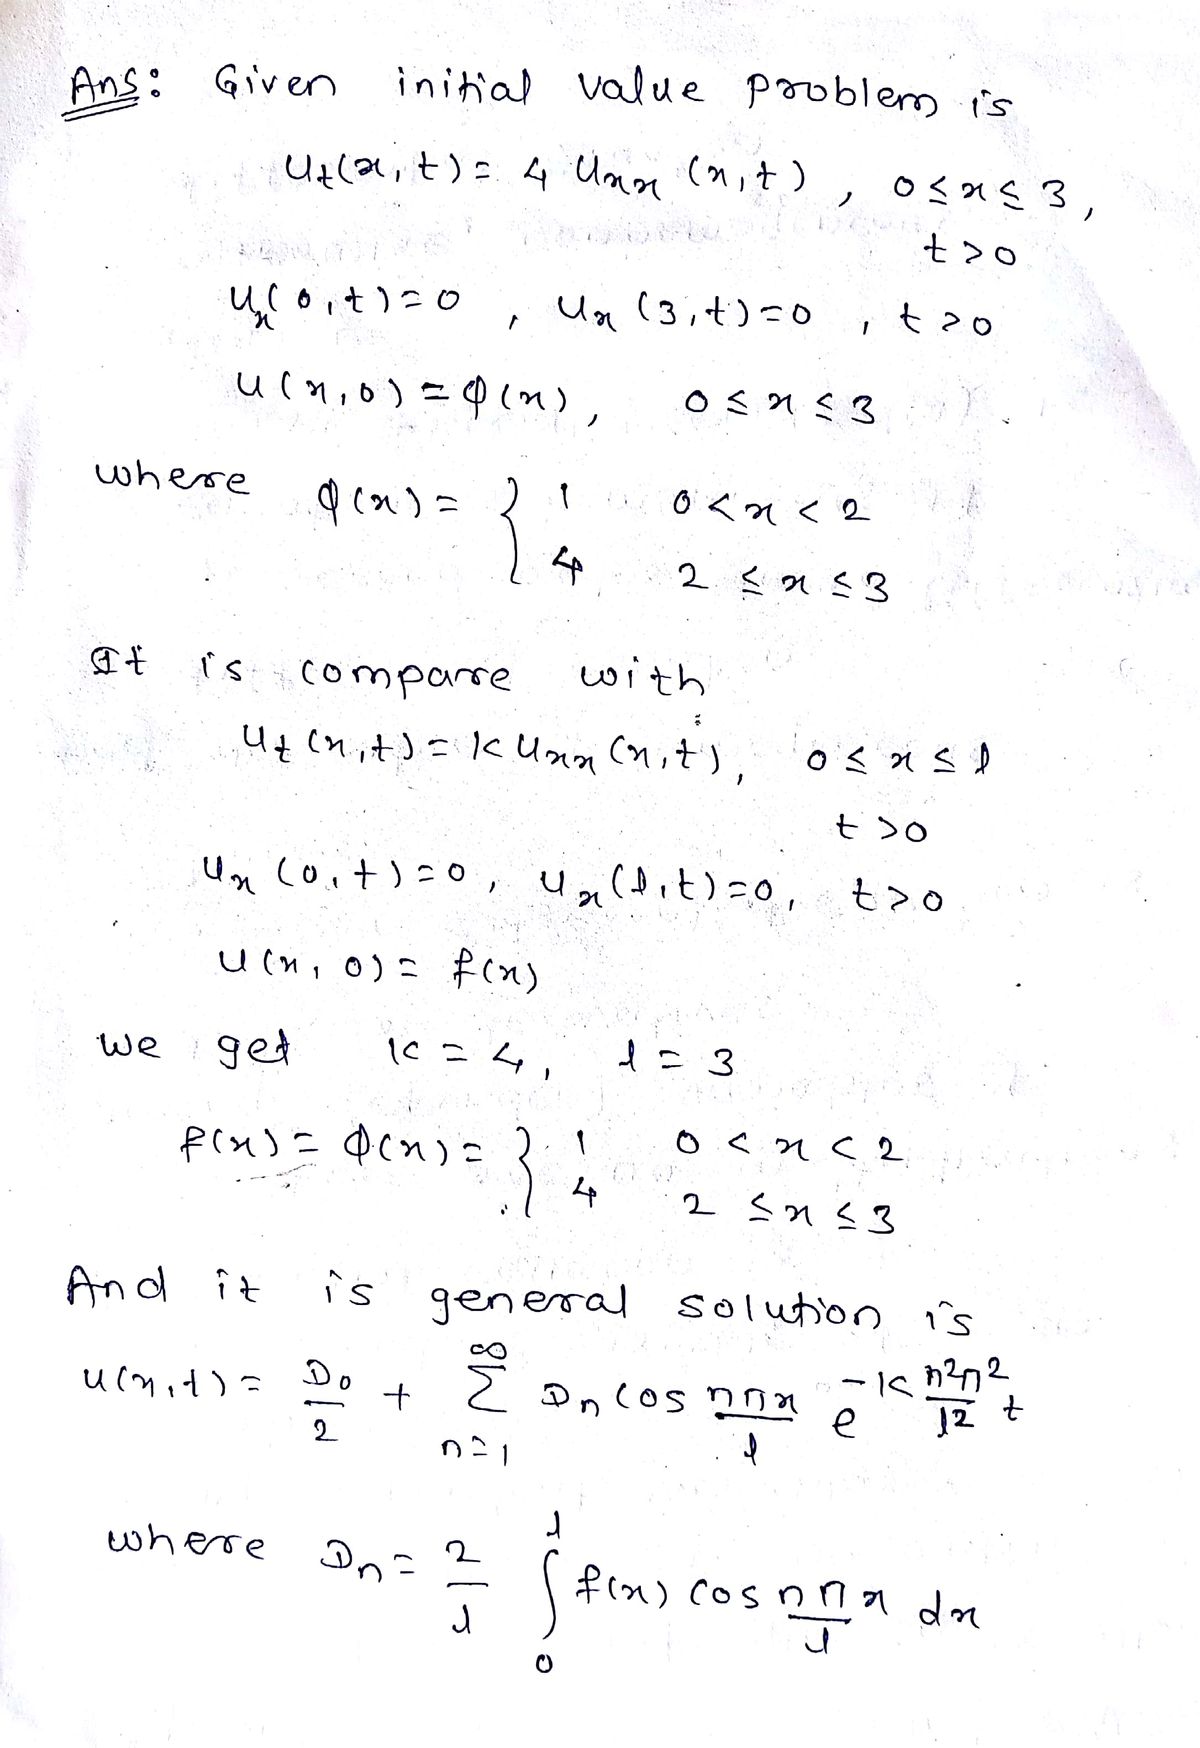 Ans: Given initial value problem is
u_t(x,t) = 4 u_xx (x,t) , 0 ≤ x ≤ 3,
t > 0
u_x(0,t) = 0 , u_x (3,t) = 0 , t > 0
u(x,0) = φ(x), 0 ≤ x ≤ 3
where φ(x) = { 1 0 < x < 2
4 2 ≤ x ≤ 3
It is compare with
u_t (x,t) = K u_xx (x,t), 0 ≤ x ≤ l
t > 0
u_x (0,t) = 0, u_x(l,t) = 0, t > 0
u(x,0) = f(x)
we get K = 4, l = 3
f(x) = φ(x) = { 1 0 < x < 2
4 2 ≤ x ≤ 3
And it is general solution is
u(x,t) = D_0/2 + ∑_{n=1}^{∞} D_n cos nπx/l e^{-K n²π²/l² t}
where D_n = 2/l ∫_0^l f(x) cos nπx/l dx